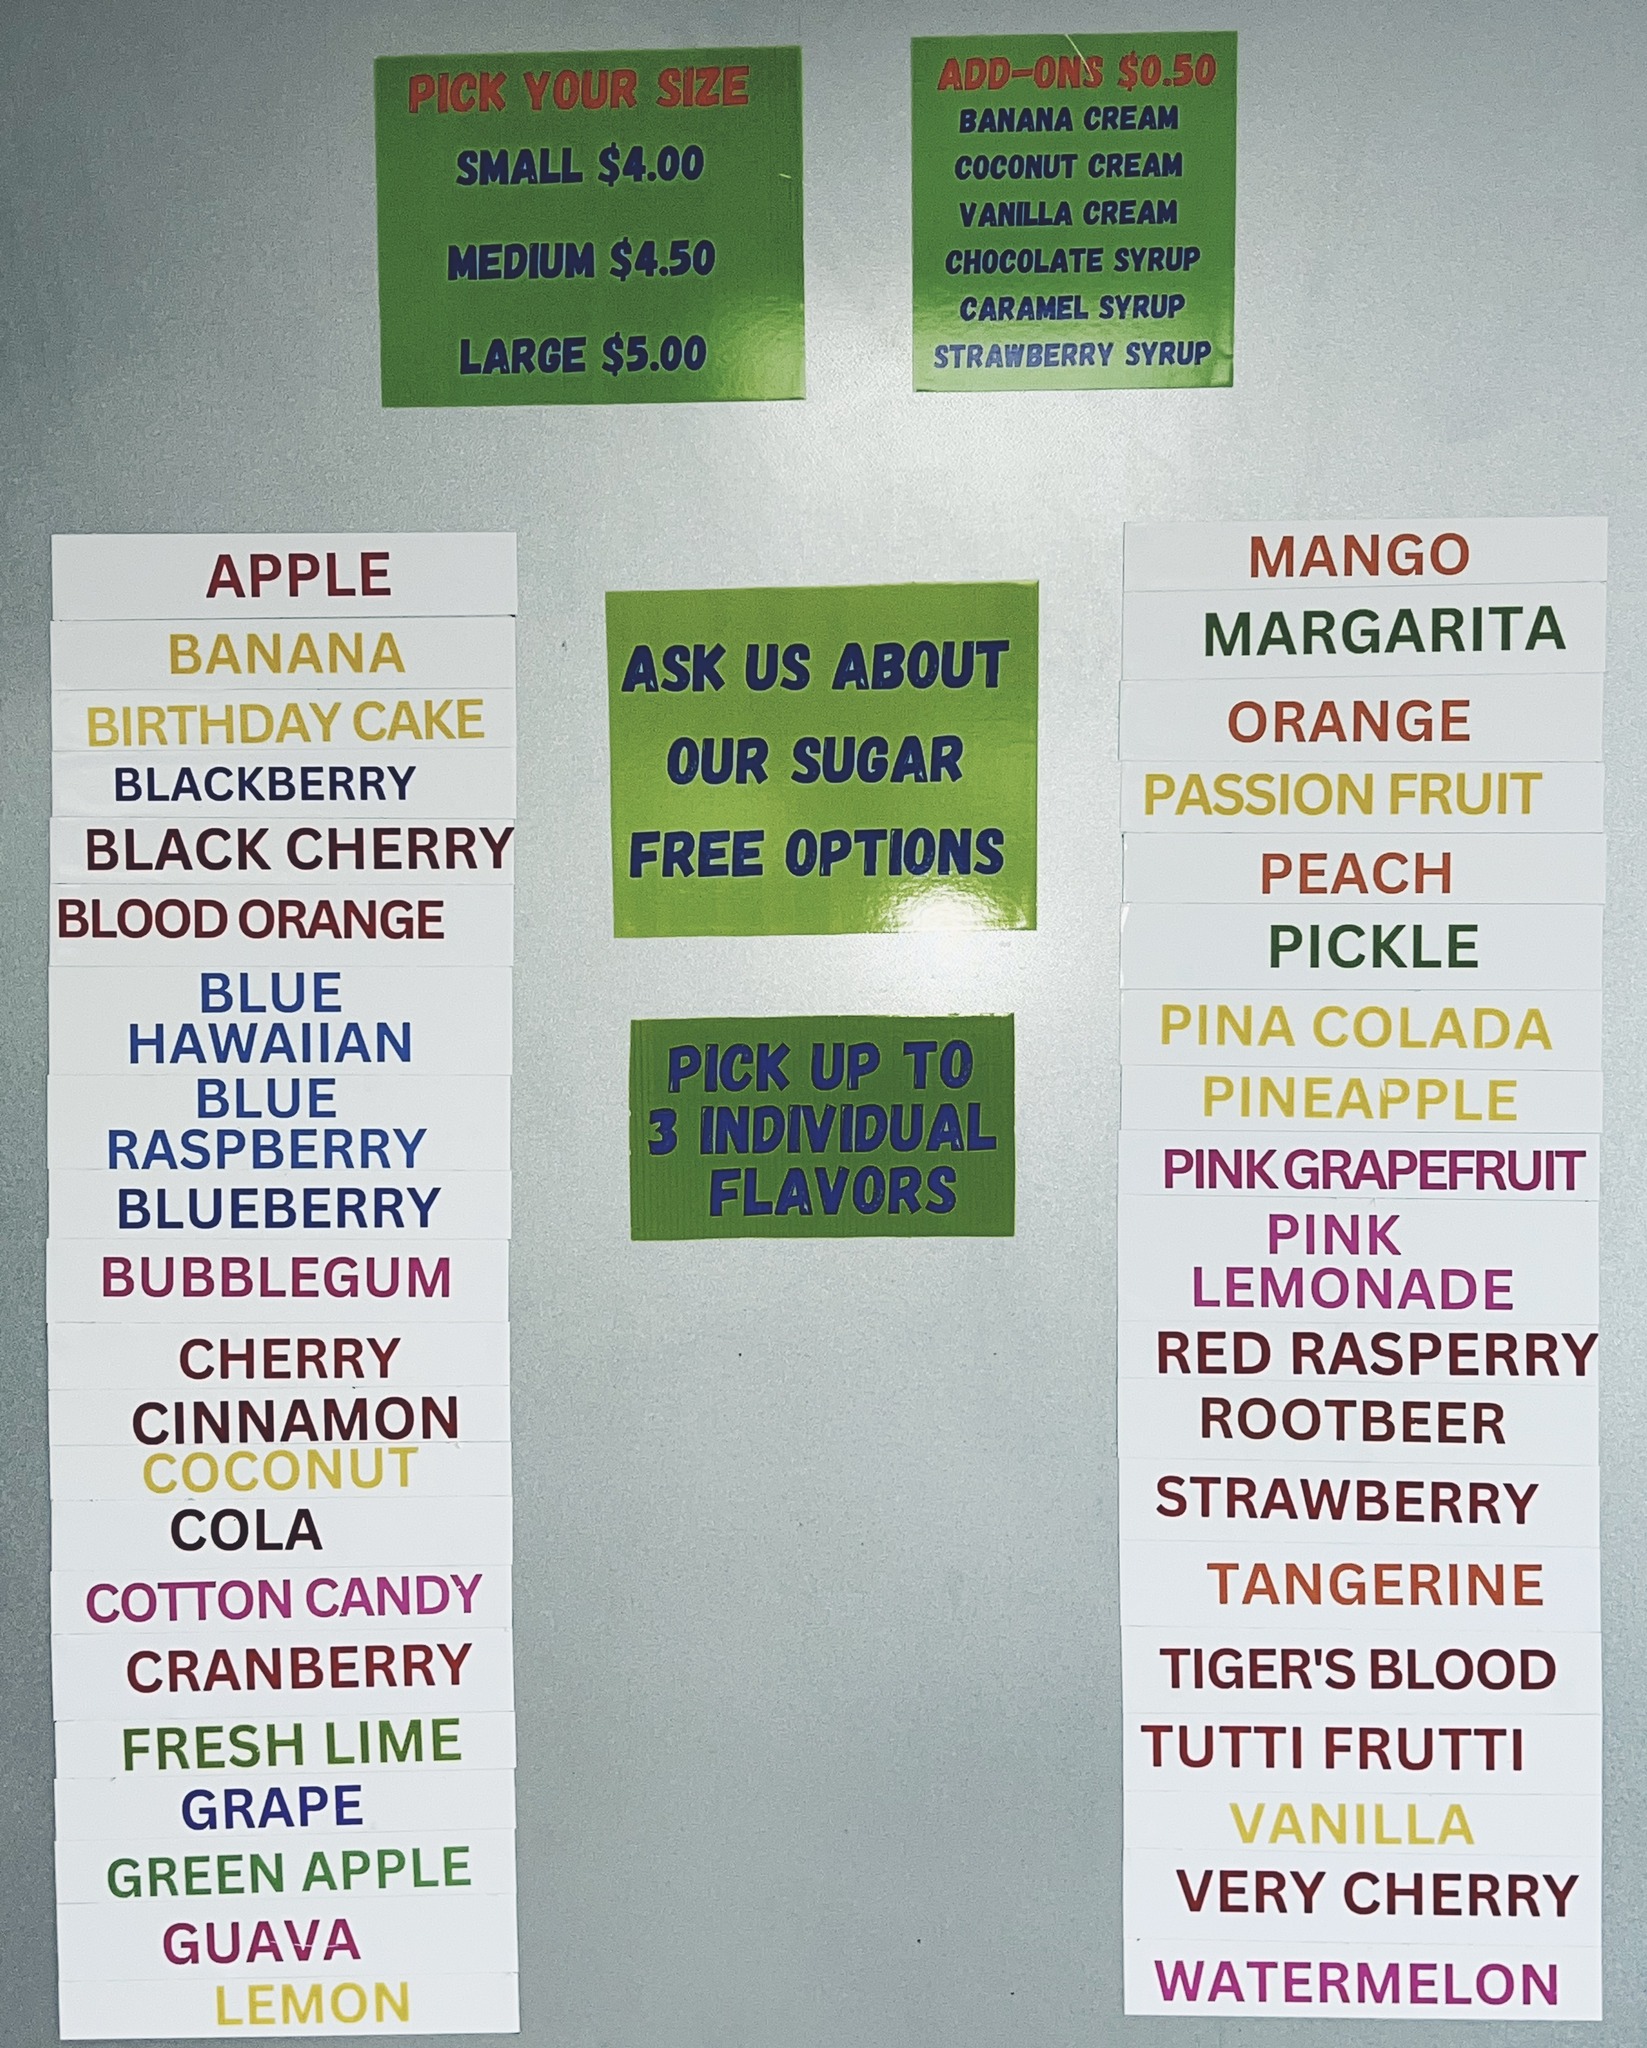 PICK YOUR SIZE
SMALL $4.00
MEDIUM $4.50
LARGE $5.00
ADD-ONS $0.50
BANANA CREAM
COCONUT CREAM
VANILLA CREAM
CHOCOLATE SYRUP
CARAMEL SYRUP
STRAWBERRY SYRUP
APPLE
BANANA
BIRTHDAY CAKE
BLACKBERRY
BLACK CHERRY
BLOOD ORANGE
BLUE
HAWAIIAN
BLUE
RASPBERRY
BLUEBERRY
BUBBLEGUM
CHERRY
CINNAMON
COCONUT
COLA
COTTON CANDY
CRANBERRY
FRESH LIME
GRAPE
GREEN APPLE
GUAVA
LEMON
ASK US ABOUT
OUR SUGAR
FREE OPTIONS
PICK UP TO
3 INDIVIDUAL
FLAVORS
MANGO
MARGARITA
ORANGE
PASSION FRUIT
PEACH
PICKLE
PINA COLADA
PINEAPPLE
PINK GRAPEFRUIT
PINK
LEMONADE
RED RASPERRY
ROOTBEER
STRAWBERRY
TANGERINE
TIGER'S BLOOD
TUTTI FRUTTI
VANILLA
VERY CHERRY
WATERMELON